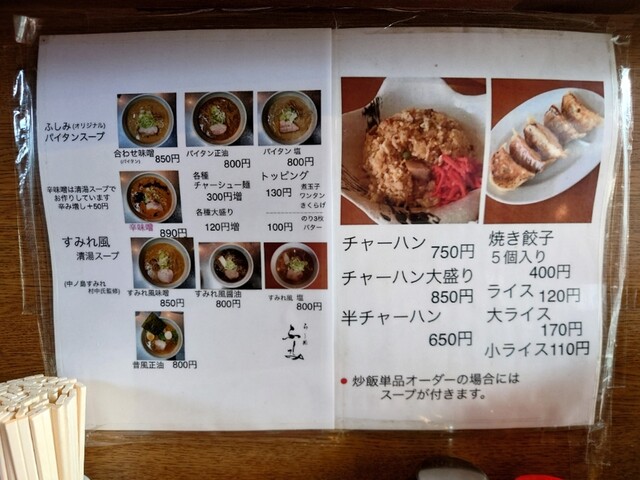 ふしみ(オリジナル)
パイタンスープ
合わせ味噌 850円
(パイタン)
パイタン正油
800円
パイタン 塩
800円
辛味噌は清湯スープで
お作りしています
辛み増し+50円
辛味噌 890円
各種
チャーシュー麺
300円増
各種大盛り
120円増
トッピング
130円
煮玉子
ワンタン
きくらげ
100円
のり3枚
バター
すみれ風
清湯スープ
(中ノ島すみれ
村中氏監修)
すみれ風味噌
850円
すみれ風醤油
800円
すみれ風 塩
800円
昔風正油 800円
ふしみ
チャーハン 750円
チャーハン大盛り
850円
半チャーハン
650円
焼き餃子
5個入り
400円
ライス 120円
大ライス
170円
小ライス110円
● 炒飯単品オーダーの場合には
スープが付きます。